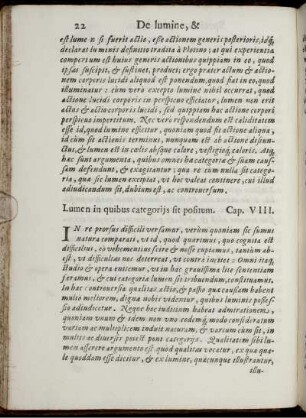 22 De lumine, &
est lume n si fuerit actio, esse actionem generis posterioris, idq́;
declarat luminis definitio tradita à Plotino: at qui experientia
compertum est huius generis actionibus quippiam in eo, quod
ipsas suscipit, & sustinet, produci; ergo præter actum & actio-
nem corporis lucidi aliquod est ponendum, quod fiat in eo, quod
illuminatur: cùm verò excepto lumine nihil occurrat, quod
actione lucidi corporis in perspicuo efficiatur, lumen non erit
actus & actio corporis lucidi, sed quippiam hac actione corpori
perspicuo impertitum. Nec verò respondendum est caliditatem
esse id, quod lumine efficitur, quoniam quod fit actione aliqua,
id cùm sit actionis terminus, nunquam est ab actione disiun-
ctus, & lumen est in cœlo absque calore,
hæc sunt argumenta, quibus omnes hæ categoriæ & suam caus-
sam defendunt, & exagitantur: qua re cum nulla sit catego-
ria, quæ sic lumen excipiat, vt hoc valeat conuincere, cui illud
adiudicandum sit, dubium est, ac controuersum.
Lumen in quibus categorijs sit positum. Cap. VIII.
IN re prorsus difficili versamur, verùm quoniam sic sumus
natura comparati, vt id, quod quærimus, quo cognitu est
difficilius, eò vehementius scire & nosse cupiamus, tantùm ab-
est, vt difficultas nos deterreat, vt contrà incitet: Omni itaq́;
studio & opera enitimur, vt in hac grauissima lite sententiam fe-
ramus, & cui categoriæ lumen sit tribuendum, constituamus.
In hac controuersia qualitas actio, & passio quæ caussam habent
multo meliorem, dignæ nobis videntur, quibus luminis posses-
sio adiudicetur. Neque hoc nullitium habeat admirationem,
quoniam vnum & idem non vno eodemq́; modo consideratum
variam ac multiplicem induit naturam, & varium cùm sit, in
multis ac diuersis potest poni categorijs. Qualitatem sibi lu-
men asserere argumento est quòd qualitas vocatur, ex qua qua-
le quoddam esse dicitur, & ex lumine, quæcunque illustrantur,
illu-